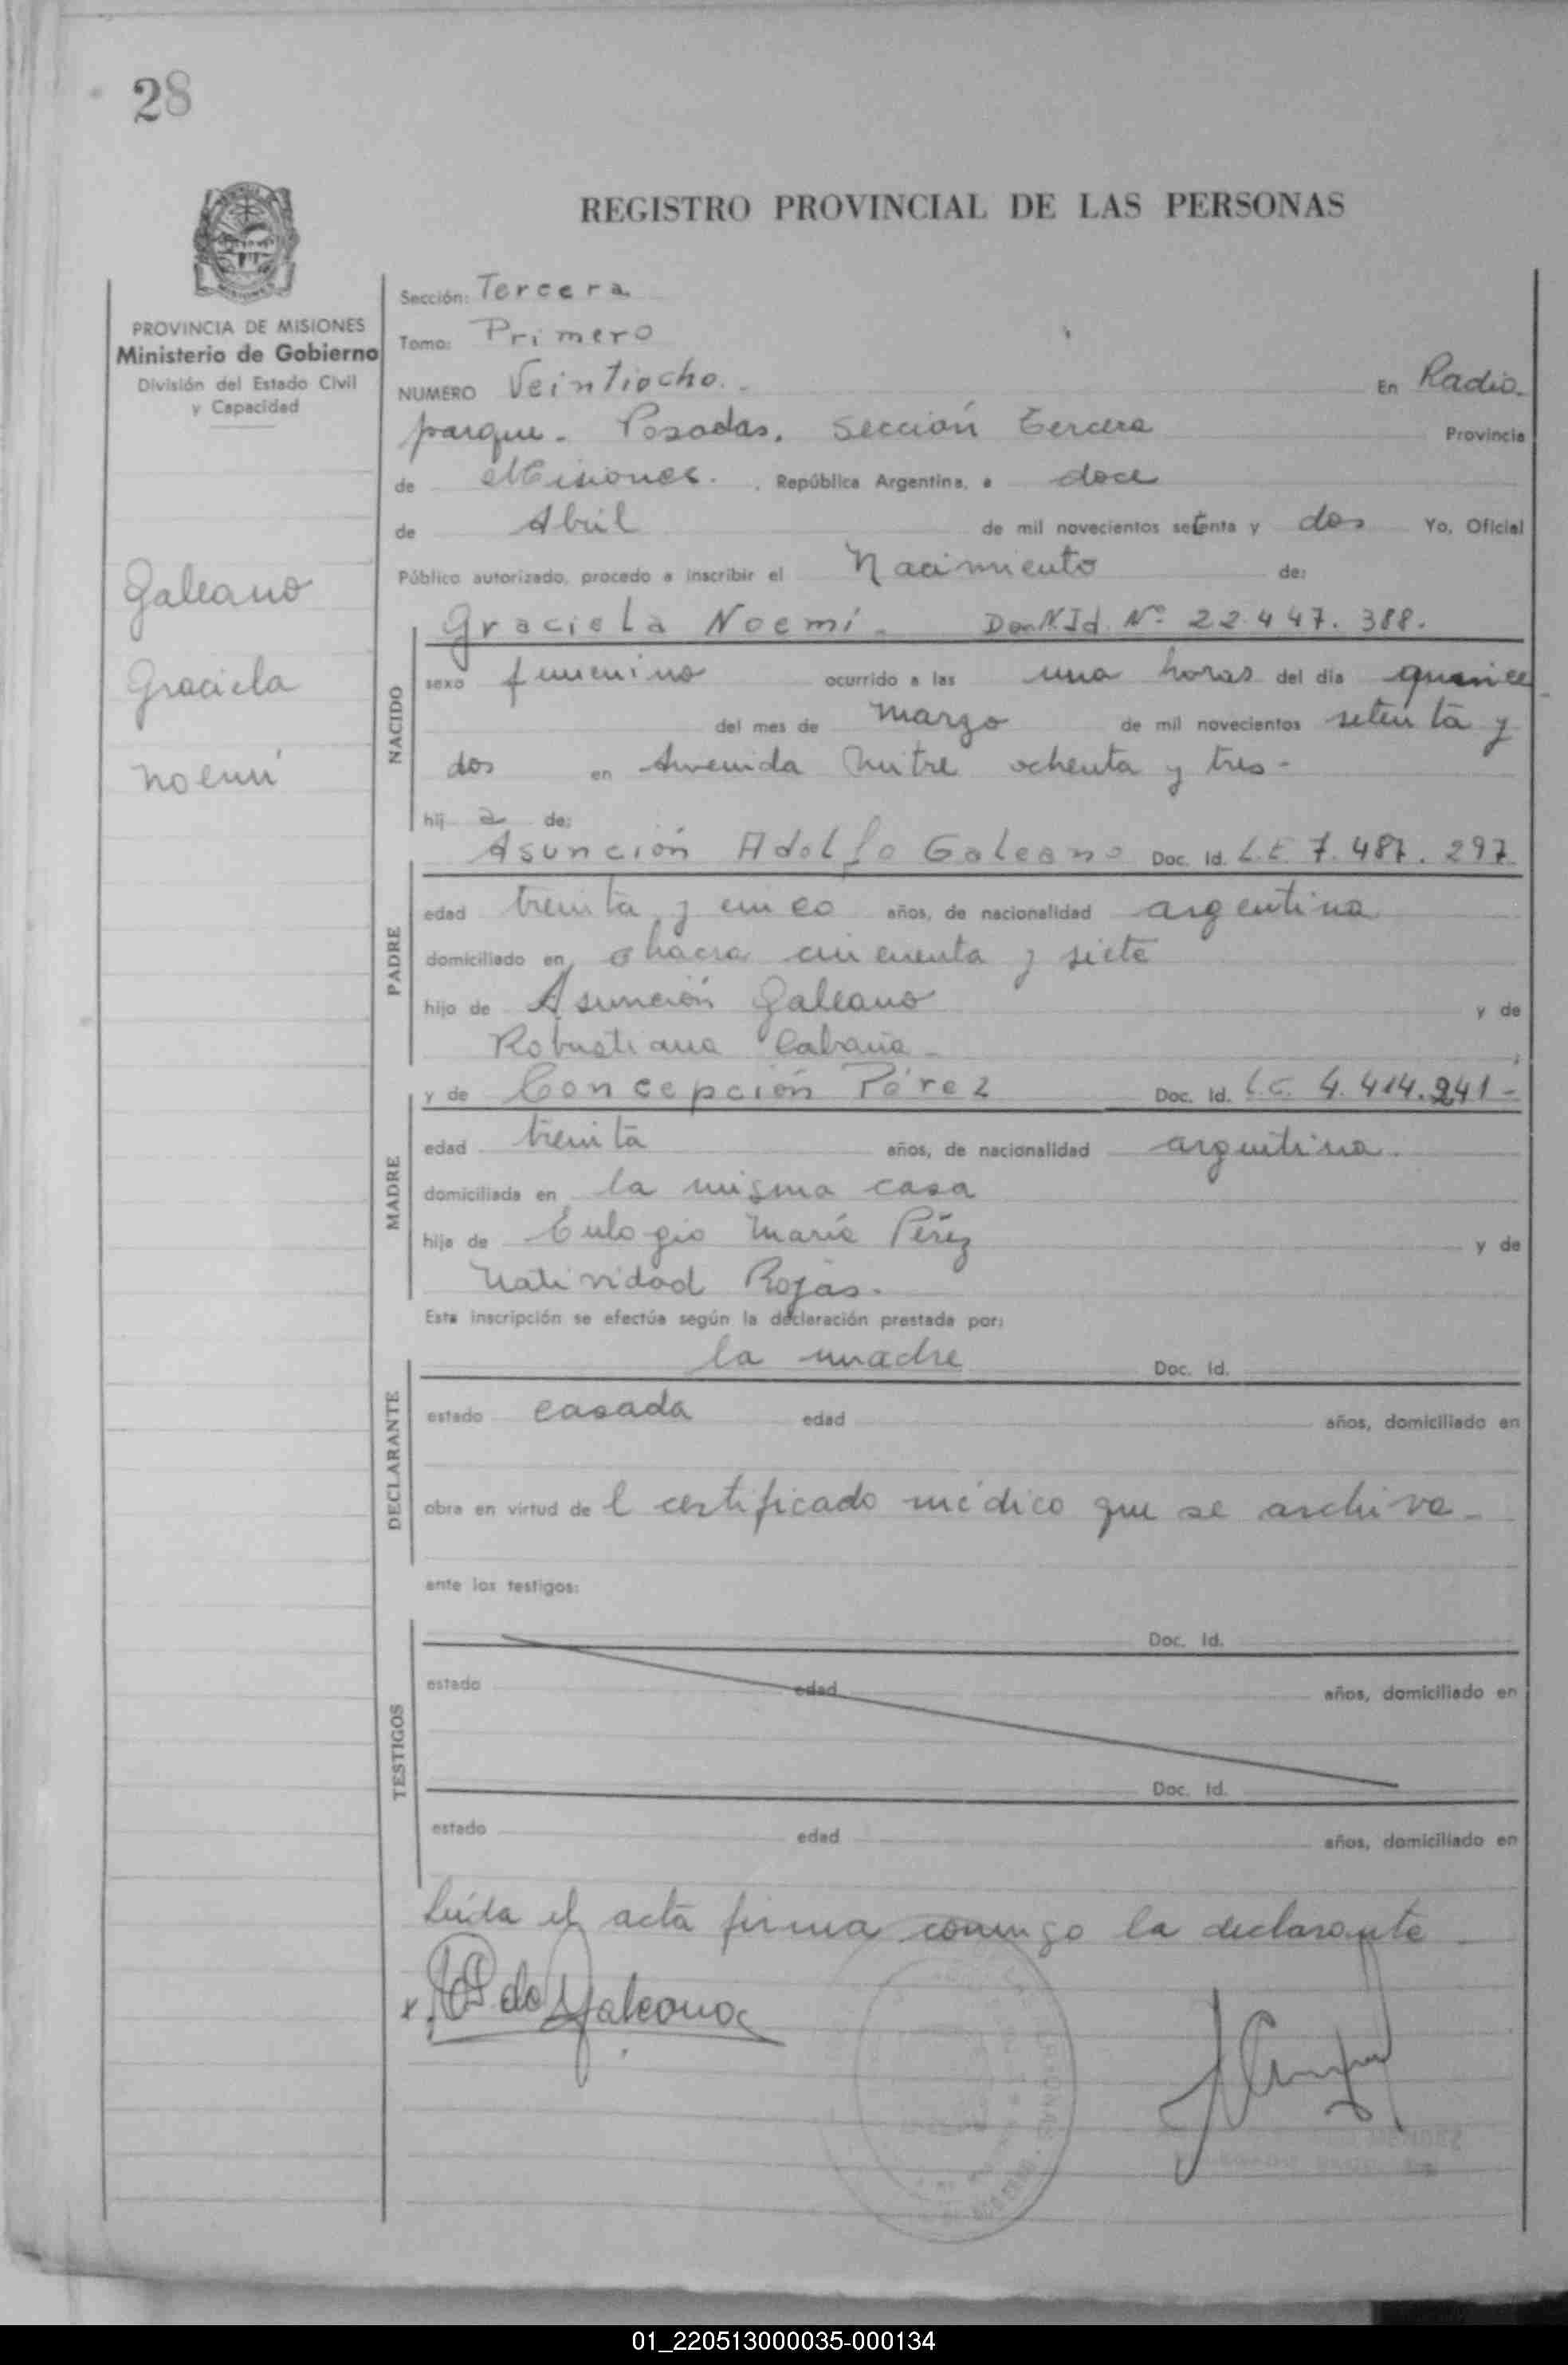 28
REGISTRO PROVINCIAL DE LAS PERSONAS
PROVINCIA DE MISIONES
Ministerio de Gobierno
División del Estado Civil
y Capacidad
Galeano
Graciela
Noemí
Sección: Tercera
Tomo: Primero
NUMERO Veintiocho. - En Radio
parque - Posadas, Sección Tercera Provincia
de Misiones. , República Argentina, a doce
de Abril de mil novecientos setenta y dos Yo, Oficial
Público autorizado, procedo a inscribir el Nacimiento de:
Graciela Noemí - Doc.N.Id. Nº 22.447.388.
NACIDO
sexo femenino ocurrido a las una horas del día quince
del mes de marzo de mil novecientos setenta y
dos en Avenida Mitre ochenta y tres -
hij a de:
Asunción Adolfo Galeano Doc. Id. L.E. 7.487.297
PADRE
edad treinta y cinco años, de nacionalidad argentina
domiciliado en chacra cincuenta y siete
hijo de Asunción Galeano y de
Robustiana Cabaña - ;
y de Concepción Pérez Doc. Id. L.C. 4.414.241 -
MADRE
edad treinta años, de nacionalidad argentina.
domiciliada en la misma casa
hija de Eulogio María Pérez y de
Natividad Rojas.
Esta inscripción se efectúa según la declaración prestada por:
la madre Doc. Id.
DECLARANTE
estado casada edad años, domiciliado en
obra en virtud de l certificado médico que se archiva -
ante los testigos:
TESTIGOS
Doc. Id.
estado edad años, domiciliado en
Doc. Id.
estado edad años, domiciliado en
Leída el acta firma conmigo la declarante -
de Galeano
01_220513000035-000134